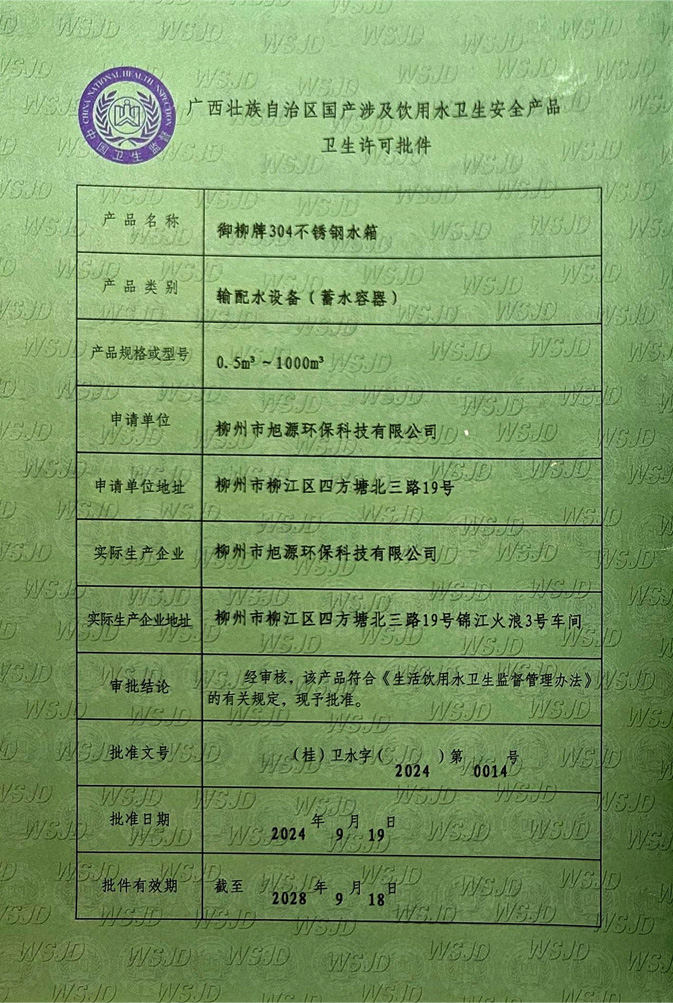 CHINA NATIONAL HEALTH INSPECTION
中国卫生监督
广西壮族自治区国产涉及饮用水卫生安全产品
卫生许可批件
产品名称 御柳牌304不锈钢水箱
产品类别 输配水设备(蓄水容器)
产品规格或型号 0.5m³~1000m³
申请单位 柳州市旭源环保科技有限公司
申请单位地址 柳州市柳江区四方塘北三路19号
实际生产企业 柳州市旭源环保科技有限公司
实际生产企业地址 柳州市柳江区四方塘北三路19号锦江火浪3号车间
审批结论 经审核,该产品符合《生活饮用水卫生监督管理办法》
的有关规定,现予批准。
批准文号 (桂)卫水字(2024)第0014号
批准日期 2024年9月19日
批件有效期 截至 2028年9月18日
WSJD